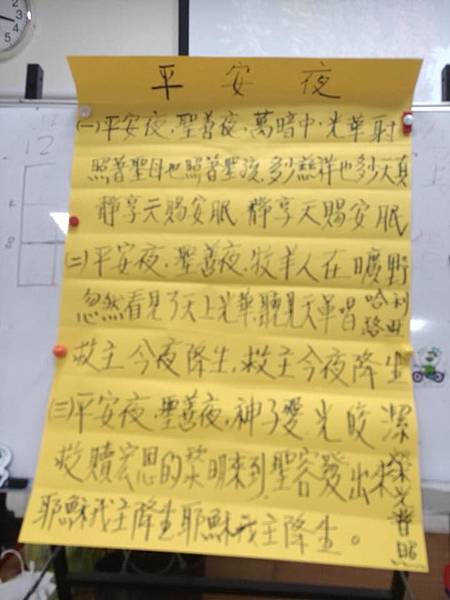 平安夜
(一)平安夜,聖善夜,萬暗中,光華射
照著聖母也照著聖嬰,多少慈祥也多少天真
靜享天賜安眠 靜享天賜安眠
(二)平安夜,聖善夜,牧羊人在曠野
忽然看見了天上光華,聽見天軍唱哈利路亞
救主今夜降生,救主今夜降生
(三)平安夜,聖善夜,神子愛光皎潔
救贖宏恩的黎明來到,聖容發出來榮光普照
耶穌我主降生耶穌我主降生。
12